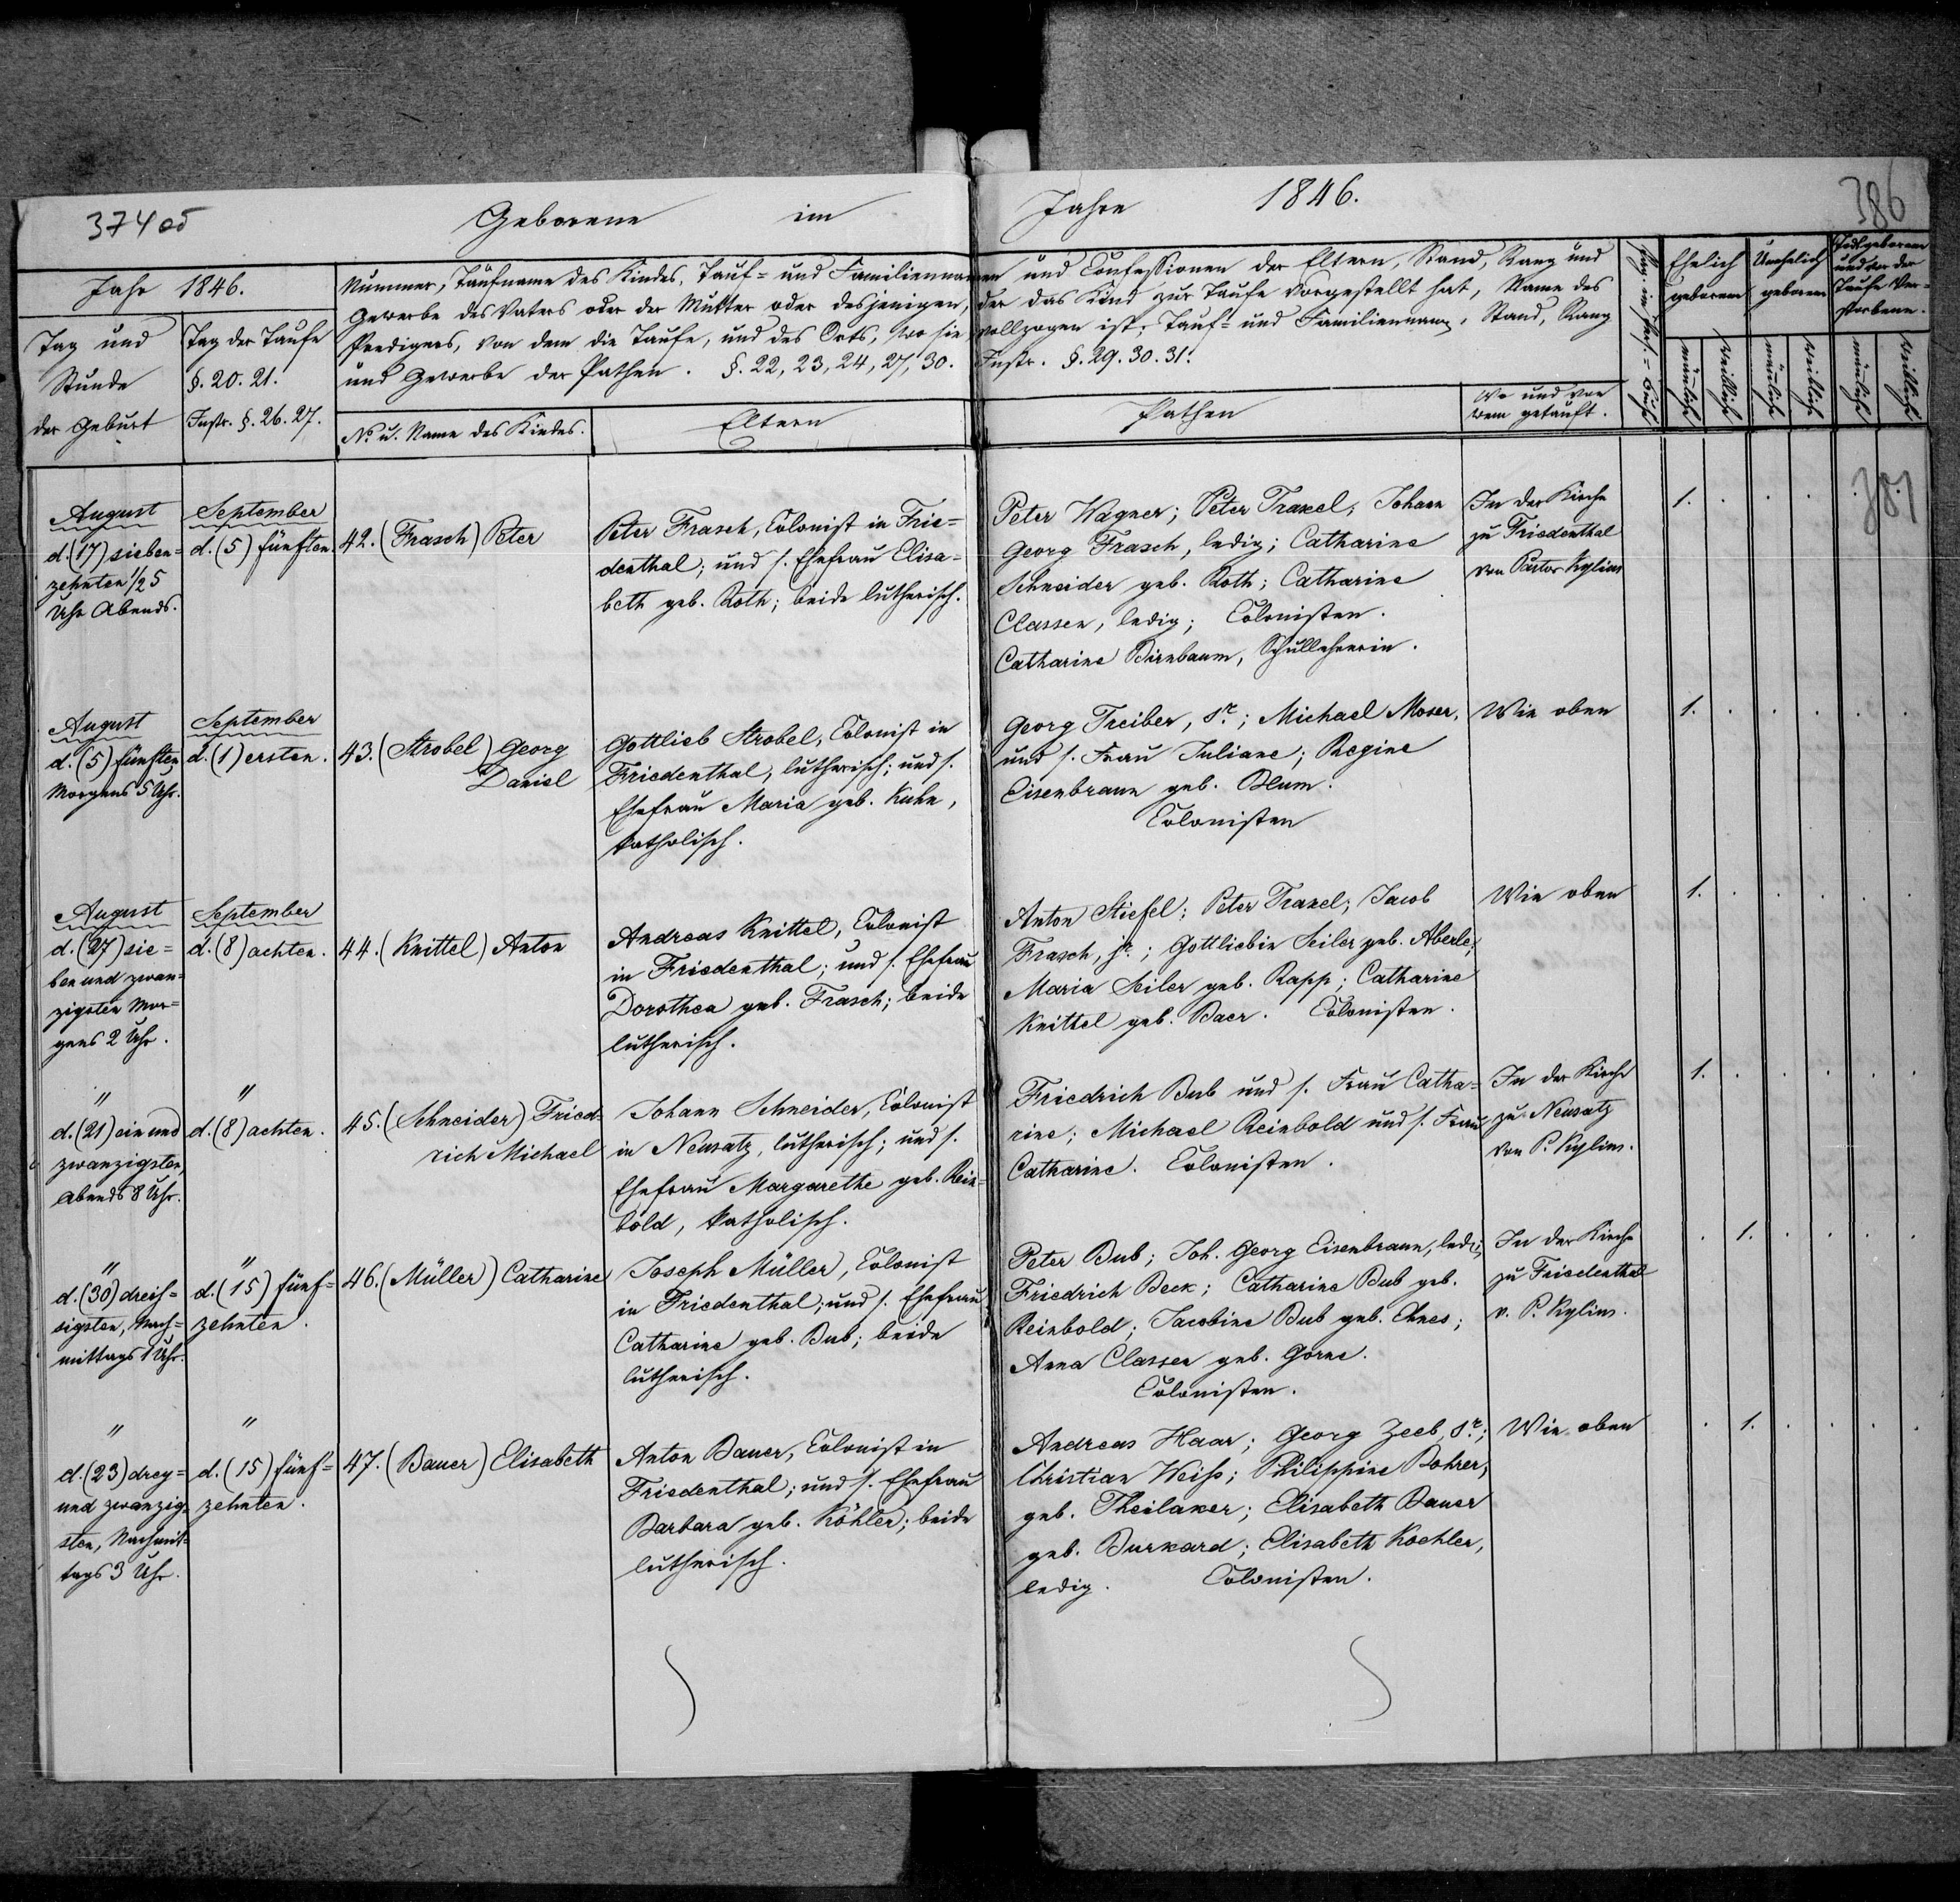 374 об
Geborene im Jahre 1846.
386
Jahr 1846.
Tag und Stunde der Geburt
Tag der Taufe §. 20. 21. Instr. §. 26. 27.
Nummer, Taufname des Kindes, Tauf= und Familiennamen und Confessionen der Eltern, Stand, Rang und
Gewerbe des Vaters oder der Mutter oder desjenigen, der das Kind zur Taufe vorgestellt hat, Name des
Predigers, von dem die Taufe, und des Orts, wo sie vollzogen ist; Tauf= und Familienname, Stand, Rang
und Gewerbe der Pathen. §. 22, 23, 24, 27, 30. Instr. §. 29. 30. 31.
No u. Name des Kindes.
Eltern
Pathen
Wo und von wem getauft.
Ehelich geboren
Unehelich geboren
Todtgeborene und vor der Taufe Verstorbene.
männlich
weiblich
männlich
weiblich
männlich
weiblich
381
August
d. (17) sieben=
zehnten 1/2 5
Uhr Abends.
September
d. (5) fünften
42. (Frasch) Peter
Peter Frasch, Colonist in Frie=
denthal; und s. Ehefrau Elisa=
beth geb. Roth; beide lutherisch.
Peter Wagner; Peter Traxel; Johann
Georg Frasch, ledig; Catharine
Schneider geb. Roth; Catharine
Classen, ledig; Colonisten.
Catharine Birnbaum, Schullehrerin.
In der Kirche
zu Friedenthal
von Pastor Kylius
1.
August
d. (5) fünften
Morgens 5 Uhr.
September
d. (1) ersten.
43. (Strobel) Georg
Daniel
Gottlieb Strobel, Colonist in
Friedenthal, lutherisch; und s.
Ehefrau Maria geb. Kuhn,
katholisch.
Georg Treiber, Sr.; Michael Moser,
und s. Frau Juliane; Regine
Eisenbraun geb. Blum.
Colonisten
Wie oben
1.
August
d. (27) sie=
ben und zwan=
zigsten Mor=
gens 2 Uhr.
September
d. (8) achten.
44. (Knittel) Anton
Andreas Knittel, Colonist
in Friedenthal; und s. Ehefrau
Dorothea geb. Frasch; beide
lutherisch.
Anton Stiefel; Peter Traxel; Jacob
Frasch, jr.; Gottliebin Seiler geb. Aberle;
Maria Seiler geb. Rapp; Catharine
Knittel geb. Baer. Colonisten.
Wie oben
1.
"
d. (21) ein und
zwanzigsten,
Abends 8 Uhr.
"
d. (8) achten.
45. (Schneider) Fried=
rich Michael
Johann Schneider, Colonist
in Neusatz, lutherisch; und s.
Ehefrau Margarethe geb. Rein=
bold, katholisch.
Friedrich Bub und s. Frau Catha=
rine; Michael Reinbold und s. Frau
Catharine. Colonisten.
In der Kirche
zu Neusatz
von P. Kylius.
1.
"
d. (30) dreis=
sigsten, Nach=
mittags 1 Uhr.
"
d. (15) fünf=
zehnten.
46. (Müller) Catharine
Joseph Müller, Colonist
in Friedenthal; und s. Ehefrau
Catharine geb. Bub; beide
lutherisch.
Peter Bub; Joh. Georg Eisenbraun, ledig;
Friedrich Beck; Catharine Bub geb.
Reinbold; Jacobine Bub geb. Ehnes;
Anna Classen geb. Gorne.
Colonisten.
In der Kirche
zu Friedenthal
v. P. Kylius.
1.
"
d. (23) drey=
und zwanzig=
sten, Nachmit=
tags 3 Uhr.
"
d. (15) fünf=
zehnten.
47. (Bauer) Elisabeth
Anton Bauer, Colonist in
Friedenthal; und s. Ehefrau
Barbara geb. Köhler; beide
lutherisch.
Andreas Haar; Georg Zeeb, Sr.;
Christian Weiß; Philippine Rohrer,
geb. Theilaker; Elisabeth Bauer
geb. Burkard; Elisabeth Koehler,
ledig. Colonisten.
Wie oben
1.